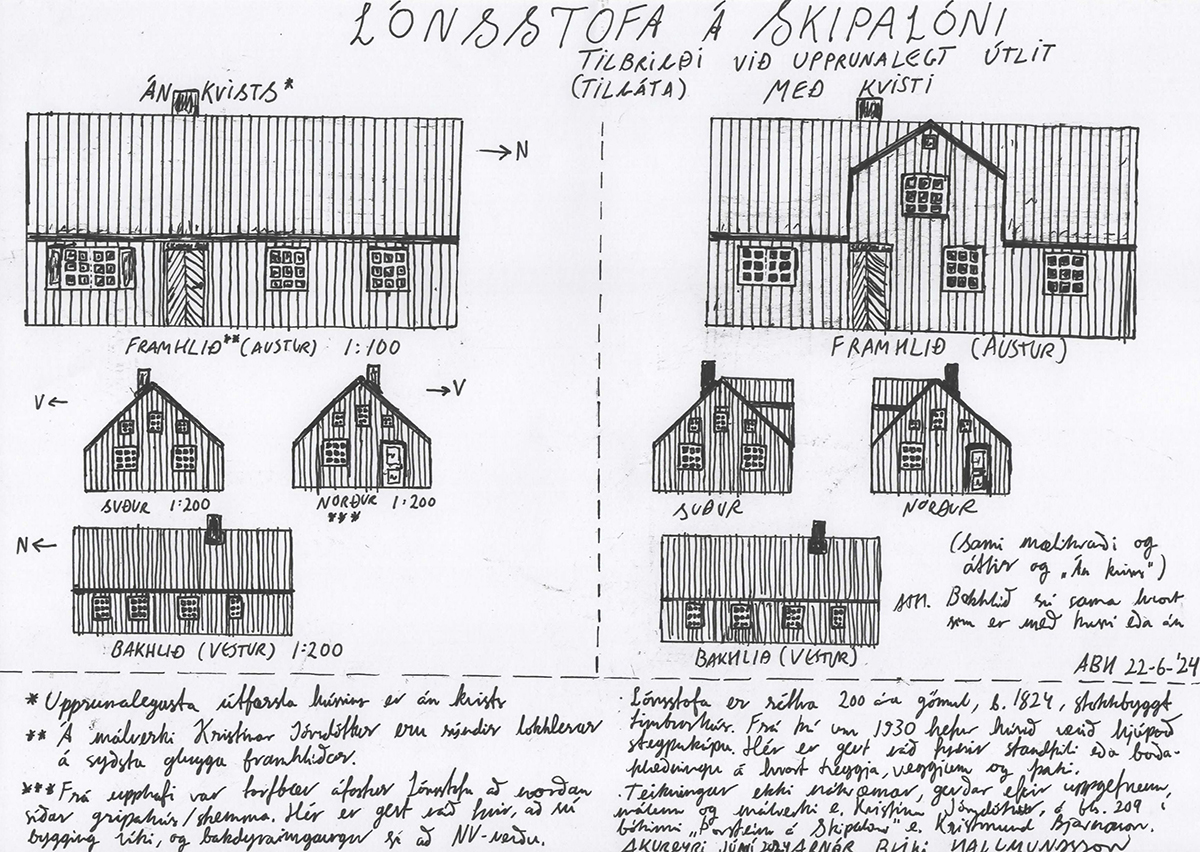 LÓNSSTOFA Á SKIPALÓNI
TILBRIGÐI VIÐ UPPRUNALEGT ÚTLIT
(TILGÁTA)
ÁN KVISTS*
MEÐ KVISTI
→N
FRAMHLIÐ** (AUSTUR) 1:100
FRAMHLIÐ (AUSTUR)
V←
→V
SUÐUR 1:200
NORÐUR 1:200
***
SUÐUR
NORÐUR
N←
BAKHLIÐ (VESTUR) 1:200
BAKHLIÐ (VESTUR)
(Sami mælikvarði og
áttir og „án kvists")
ATH. Bakhlið sú sama hvort
sem er með kvisti eða án
ABH 22-6-'24
* Upprunalegasta útfærsla hússins er án kvists
** Á málverki Kristínar Jónsdóttur eru sýndir lokhlerar
á syðsta glugga framhliðar.
*** Frá upphafi var torfbær áfastur Lónsstofu að norðan
síðar gripahús/skemma. Hér er gert ráð fyrir, að sú
bygging víki, og bakdyrainngangur sé að NV-verðu.
Lónsstofa er réttra 200 ára gömul, b. 1824, stokkbyggt
timburhús. Frá því um 1930 hefur húsið verið hjúpað
steypukápu. Hér er gert ráð fyrir standþili eða borða-
klæðningu á hvort tveggja, veggjum og þaki.
Teikningar ekki nákvæmar, gerðar eftir uppgefnum
málum og málverki e. Kristínu Jónsdóttur, á bls. 209 í
bókinni „Þorsteinn á Skipalóni" e. Kristmund Bjarnason.
AKUREYRI JÚNÍ 2024 ARNÓR BLIKI HALLMUNDSSON